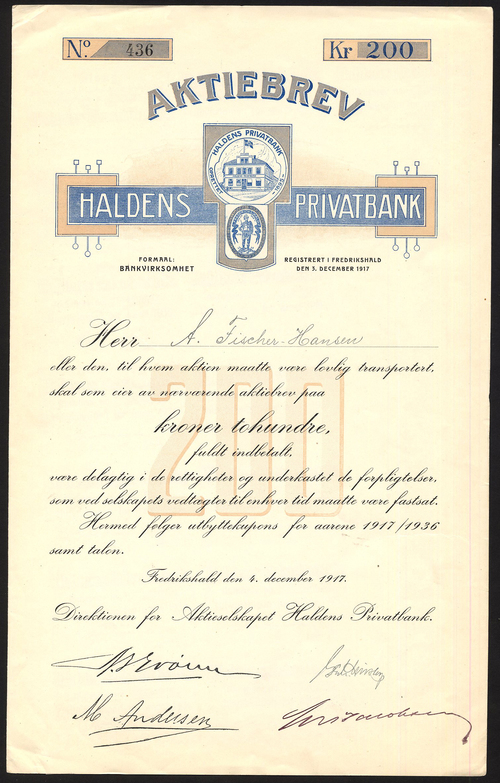 No. 436
Kr 200
AKTIEBREV
HALDENS PRIVATBANK
OPRETTET
HALDENS PRIVATBANK
FORMAAL:
BANKVIRKSOMHET
REGISTRERT I FREDRIKSHALD
DEN 3. DECEMBER 1917
Herr A. Fischer-Hansen
eller den, til hvem aktien maatte være lovlig transportert,
skal som eier av nærværende aktiebrev paa
200
kroner tohundre,
fuldt indbetalt,
være delagtig i de rettigheter og underkastet de forpligtelser,
som ved selskapets vedtægter til enhver tid maatte være fastsat.
Hermed følger utbyttekupons for aarene 1917/1936
samt talon.
Fredrikshald den 4. december 1917.
Direktionen for Aktieselskapet Haldens Privatbank.
M Andersen